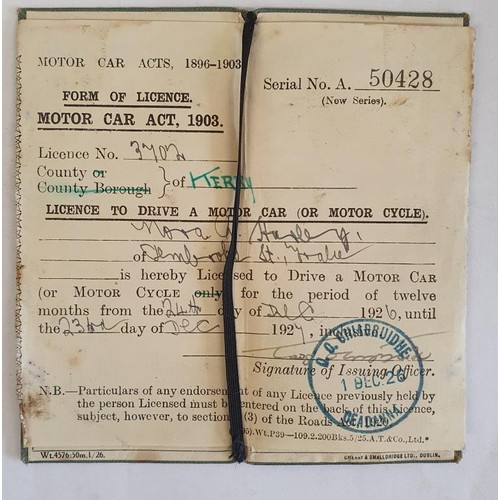 MOTOR CAR ACTS, 1896-1903
Serial No. A. 50428
(New Series).
FORM OF LICENCE.
MOTOR CAR ACT, 1903.
Licence No. 3702
County or
County Borough } of KERRY
LICENCE TO DRIVE A MOTOR CAR (OR MOTOR CYCLE).
Nora
of Pembroke St., Tralee
is hereby Licensed to Drive a MOTOR CAR
(or MOTOR CYCLE only) for the period of twelve
months from the 24th day of DEC 1926, until
the 23rd day of DEC 1927, inclusive
Signature of Issuing Officer.
N.B.—Particulars of any endorsement of any Licence previously held by
the person Licensed must be entered on the back of this Licence,
subject, however, to section (3) of the Roads Act, 1920.
Wt.P39—109.2.200Bks.5/25.A.T.&Co.,Ltd.*
Wt.4576.50m.1/26.
CAHILL & SMALLDRIDGE LTD., DUBLIN.
O.O. CHIARUIDHE
1 DEC 26